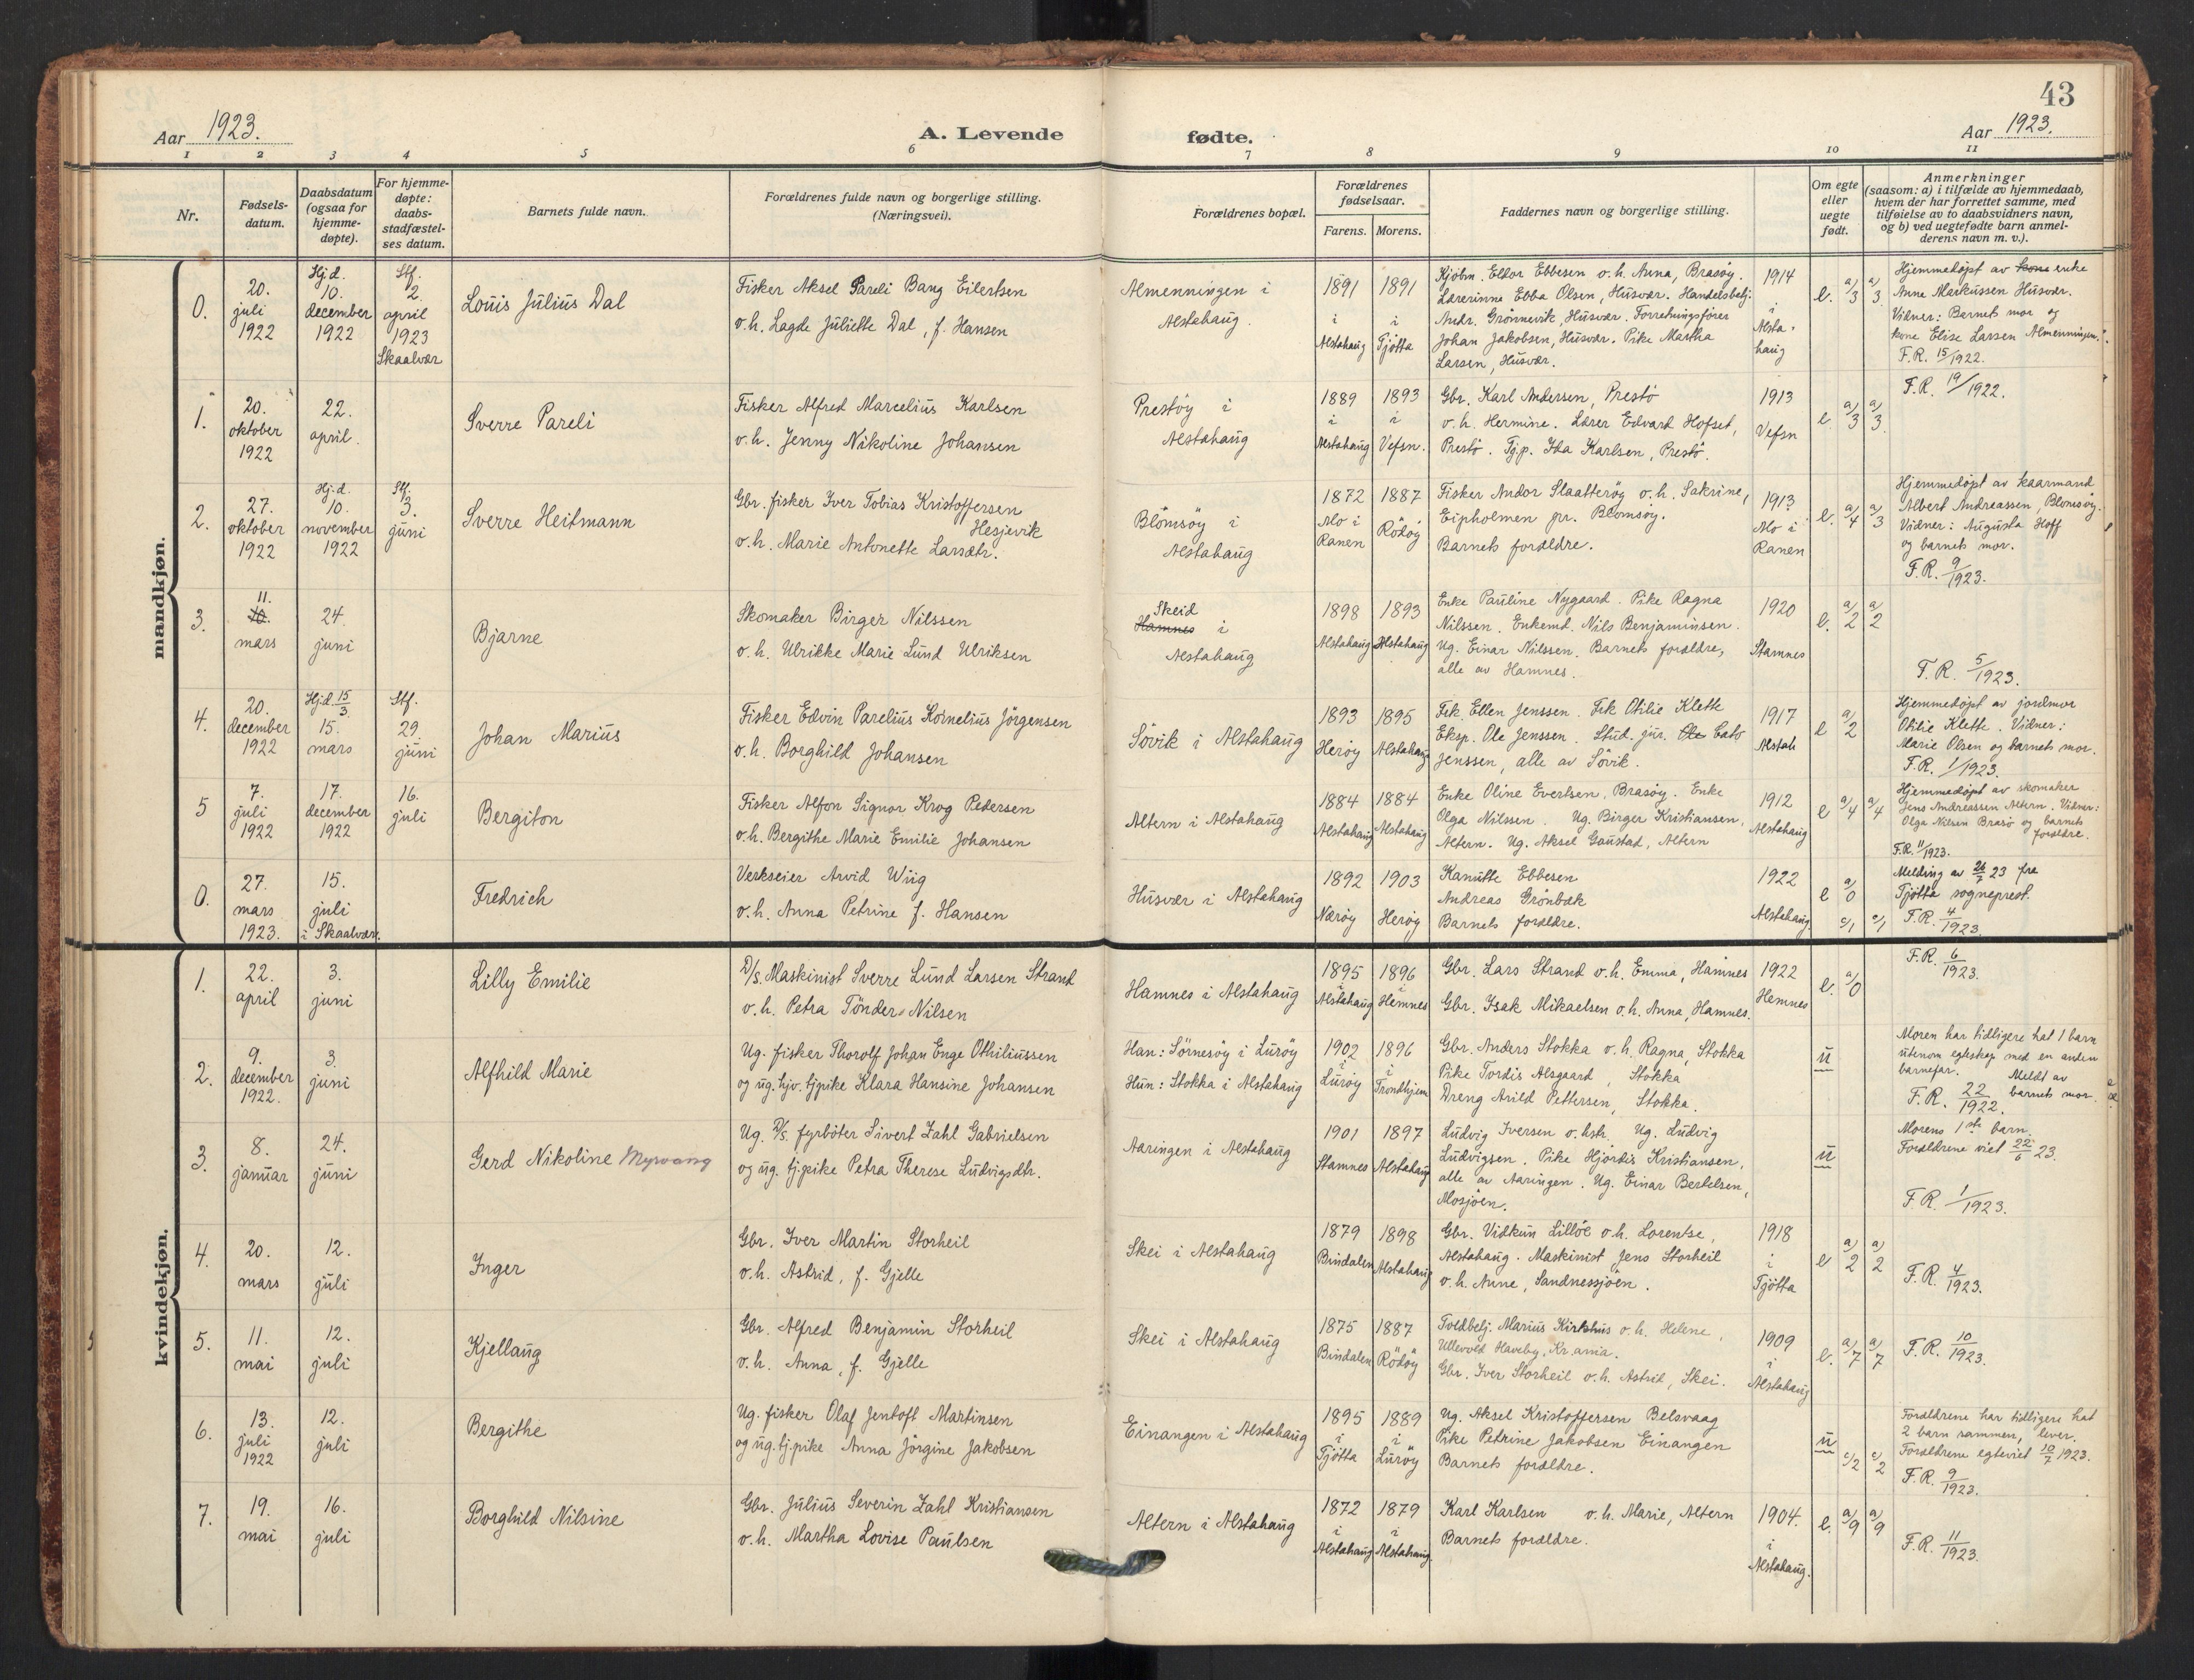 43
Aar 1923.
A. Levende fødte.
Aar 1923.
1 2 3 4 5 6 7 8 9 10 11
Nr.
Fødsels-
datum.
Daabsdatum
(ogsaa for
hjemme-
døpte).
For hjemme-
døpte:
daabs-
stadfæstel-
ses datum.
Barnets fulde navn.
Forældrenes fulde navn og borgerlige stilling.
(Næringsvei).
Forældrenes bopæl.
Forældrenes
fødselsaar.
Farens. Morens.
Faddernes navn og borgerlige stilling.
Om egte
eller
uegte
født.
Anmerkninger
(saasom: a) i tilfælde av hjemmedaab,
hvem der har forrettet samme, med
tilføielse av to daabsvidners navn,
og b) ved uegtefødte barn anmel-
derens navn m. v.).
mandkjøn.
0.
20.
juli
1922
Hj.d.
10.
december
1922
Stf.
2.
april
1923
Skaalvær
Louis Julius Dal
Fisker Aksel Pareli Bang Eilertsen
o.h. Lagde Juliette Dal, f. Hansen
Almenningen i
Alstahaug.
1891
i
Alstahaug
1891
i
Tjøtta
Kjøbm. Eldor Ebbesen o.h. Anna, Brasøy.
Lærerinne Ebba Olsen, Husvær. Handelsbetj.
Andr. Grønnevik, Husvær. Forretningsfører
Johan Jakobsen, Husvær. Pike Martha
Larsen, Husvær.
1914
i
Alsta-
haug
e. a/3 a/3
Hjemmedøpt av kone enke
Anne Markussen Husvær.
Vidner: Barnets mor og
kone Elise Larsen Almenningen.
F.R. 15/1922.
1.
20.
oktober
1922
22.
april.
Sverre Pareli
Fisker Alfred Marcelius Karlsen
o.h. Jenny Nikoline Johansen
Prestøy i
Alstahaug
1889
i
Alstahaug
1893
i
Vefsn.
Gbr. Karl Andersen, Prestö
o.h. Hermine. Lærer Edvard Hofset,
Prestö. Tj.p. Ida Karlsen, Prestö.
1913
Vefsn
e a/3 a/3.
F.R. 19/1922.
2.
27.
oktober
1922
Hj.d.
10.
november
1922
Stf.
3.
juni
Sverre Heitmann
Gbr. fisker Iver Tobias Kristoffersen
Hesjevik
o.h. Marie Antonette Larsdtr.
Blomsøy i
Alstahaug
1872
Mo i
Ranen
1887
Rödöy
Fisker Andor Slaatterøy o.h. Sakrine,
Eipholmen pr. Blomsøy.
Barnets forældre.
1913
Mo i
Ranen
e. a/4 a/3
Hjemmedøpt av kaarmand
Albert Andreassen, Blomsøy.
Vidner: Augusta Hoff
og barnets mor.
F.R. 9/1923.
3.
11.
10.
mars
24.
juni
Bjarne
Skomaker Birger Nilssen
o.h. Ulrikke Marie Lund Ulriksen
Skeid
Hamnes i
Alstahaug
1898
Alstahaug
1893
Alstahaug
Enke Pauline Nygaard. Pike Ragna
Nilssen. Enkemd. Nils Benjaminsen.
Ug. Einar Nilssen. Barnets forældre,
alle av Hamnes.
1920
Stamnes
e. a/2 a/2
F.R. 5/1923.
4.
20.
december
1922
Hj.d. 15/3
15.
mars
Stf.
29.
juni
Johan Marius
Fisker Edvin Parelius Kornelius Jörgensen
o.h. Borghild Johansen
Sövik i Alstahaug
1893
Herøy
1895
Alstahaug
Frk. Ellen Jenssen. Frk Otilie Klette
Eksp. Ole Jenssen. Stud. jur. Ole Cato
Jenssen, alle av Sövik.
1917
Alstah
e a/2
Hjemmedøpt av jordmor
Otilie Klette. Vidner:
Marie Olsen og barnets mor.
F.R. 1/1923.
5
7.
juli
1922
17.
december
1922
16.
juli
Bergiton
Fisker Alfon Signor Krog Pedersen
o.h. Bergithe Marie Emilie Johansen
Altern i Alstahaug
1884
Alstahaug
1884
Alstahaug
Enke Oline Evertsen, Brasøy. Enke
Olga Nilssen. Ug. Birger Kristiansen,
Altern. Ug. Aksel Gaustad, Altern
1912
Alstahaug
e a/4 a/4
Hjemmedøpt av skomaker
Jens Andreassen Altern. Vidner:
Olga Nilsen Brasö og barnets
forældre.
F.R. 11/1923.
0.
27.
mars
1923.
15.
juli
i Skaalvær.
Fredrich
Verkseier Arvid Wiig
o.h. Anna Petrine f. Hansen
Husvær i Alstahaug
1892
Nærøy
1903
Herøy
Kanutte Ebbesen
Andreas Grönbæk
Barnets forældre.
1922
Alstahaug.
e a/0
c/1 c/1
Melding av 26/7 23 fra
Tjøtta sogneprest.
F.R. 4/1923.
kvindekjøn.
1.
22.
april
3.
juni
Lilly Emilie
D/s. Maskinist Sverre Lund Larsen Strand
o.h. Petra Tönder Nilsen
Hamnes i Alstahaug
1895
i
Alstahaug
1896
i
Hemnes
Gbr. Lars Strand o.h. Emma, Hamnes
Gbr. Isak Mikaelsen o.h. Anna, Hamnes.
1922
Hemnes
e. a/0
F.R. 6/1923.
2.
9.
december
1922.
3.
juni
Alfhild Marie
Ug. fisker Thorolf Johan Enge Othiliussen
og ug. hjv. tjpike Klara Hansine Johansen
Han: Sörnesöy i Luröy
Hun: Stokka i Alstahaug
1902
i
Luröy
1896
i
Trondhjem
Gbr. Anders Stokka o.h. Ragna, Stokka
Pike Tordis Alsgaard, Stokka
Dreng Arild Pettersen, Stokka.
u
Moren har tidligere hat 1 barn
utenom egteskap med en anden
barnefar. Meldt av
F.R. 22/1922. barnets mor.
3.
8.
januar
24.
juni
Gerd Nikoline Myrvang
Ug. D/s. fyrböter Sivert Zahl Gabrielsen
og ug. tj.pike Petra Therese Ludvigsdtr.
Aaringen i Alstahaug
1901
Stamnes
1897
Alstahaug
Ludvig Iversen o.hstr. Ug. Ludvig
Ludvigsen. Pike Hjördis Kristiansen,
alle av Aaringen. Ug. Einar Bertelsen,
Mosjøen.
u
Morens 1ste barn.
Forældrene viet 22/6 23.
F.R. 1/1923.
4.
20.
mars
12.
juli
Inger
Gbr. Iver Martin Storheil
o.h. Astrid, f. Gjelle
Skei i Alstahaug
1879
Bindalen
1898
Alstahaug
Gbr. Vidkun Lilløe o.h. Lorentse,
Alstahaug. Maskinist Jens Storheil
o.h. Anne, Sandnessjøen.
1918
i
Tjøtta
e a/2 a/2
F.R. 4/1923.
5.
11.
mai
12.
juli
Kjellaug
Gbr. Alfred Benjamin Storheil
o.h. Anna, f. Gjelle
Skei i Alstahaug
1875
Bindalen
1887
Rödöy
Toldbetj. Marius Kirkhus o.h. Helene,
Ullevold Haveby, Kr.ania.
Gbr. Iver Storheil o.h. Astrid, Skei.
1909
i
Alstahaug
e. a/7 a/7
F.R. 10/1923.
6.
13.
juli
1922
12.
juli
Bergithe
Ug. fisker Olaf Jentoft Martinsen
og ug. tj.pike Anna Jörgine Jakobsen
Einangen i Alstahaug
1895
i
Tjötta
1889
i
Luröy
Ug. Aksel Kristoffersen Belsvaag
Pike Petrine Jakobsen Einangen
Barnets forældre.
u
c/2 c/2
Forældrene har tidligere hat
2 barn sammen, lever.
Forældrene egteviet 10/7 1923.
F.R. 9/1923.
7.
19.
mai
16.
juli
Borghild Nilsine
Gbr. Julius Severin Zahl Kristiansen
o.h. Martha Lovise Paulsen
Altern i Alstahaug
1872
i
Alstahaug
1879
i
Alstahaug
Karl Karlsen o.h. Marie, Altern
Barnets forældre.
1904.
i
Alstahaug.
e. a/9 a/9
F.R. 11/1923.